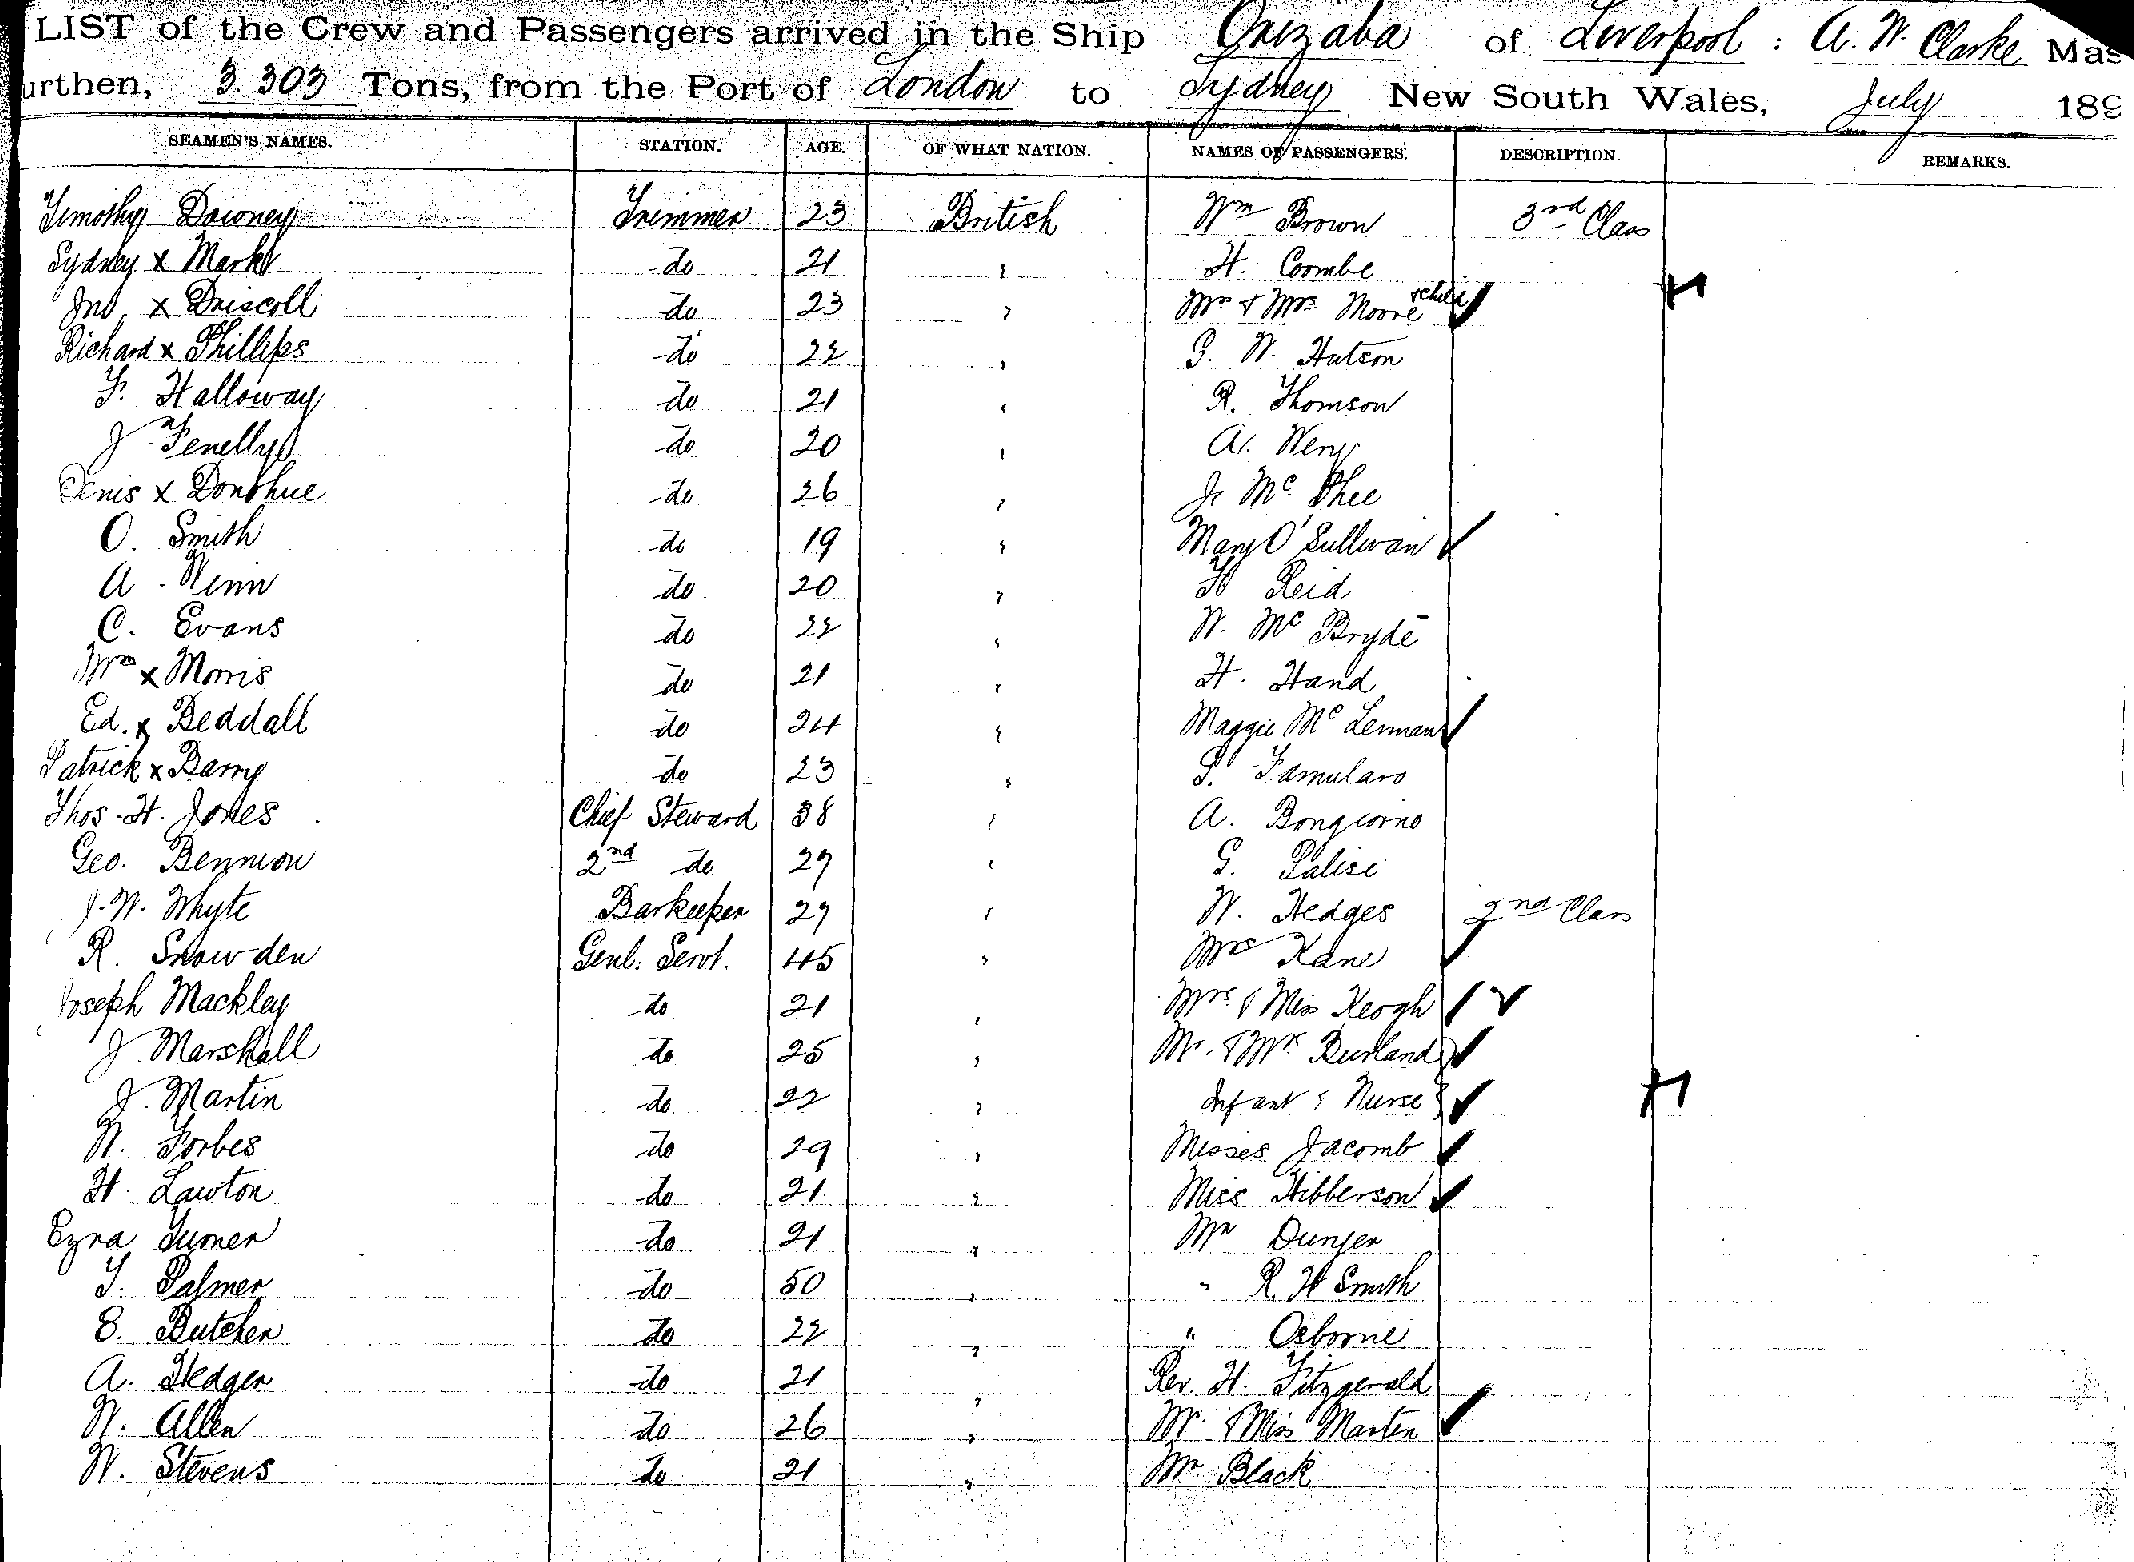 LIST of the Crew and Passengers arrived in the Ship Orizaba of Liverpool: A. W. Clarke Mas
urthen, 3.303 Tons, from the Port of London to Sydney New South Wales, July 189
SEAMEN'S NAMES. STATION. AGE. OF WHAT NATION. NAMES OF PASSENGERS. DESCRIPTION. REMARKS.
Timothy Downey Trimmer 23 British Wm Brown 3rd Class
Sydney x Marks do 21 " H. Coombe
Jno. x Driscoll do 23 " Mr & Mrs Moore & child
Richard x Phillips do 22 " G. W. Hutson
F. Halloway do 21 " R. Thomson
J Fenelly do 20 " A. Wery
Denis x Donohue do 26 " J. Mc Phee
O. Smith do 19 " Mary O'Sullivan
A. Winn do 20 " H Reid
C. Evans do 22 " W. Mc Bryde
Wm x Morris do 21 " H. Hand
Ed. x Beddall do 24 " Maggie Mc Lennan
Patrick x Barry do 23 " S. Famularo
Thos. H. Jones Chief Steward 38 " A. Bongiorno
Geo. Bennion 2nd do 27 " G. Palise
J. W. Whyte Barkeeper 27 " W. Hedges 2nd Class
R. Snowden Genl. Servt. 45 " Mrs Kane
Joseph Mackley do 21 " Mrs & Miss Keogh
J. Marshall do 25 " Mr. & Mrs Burland
J. Martin do 22 " Infant & Nurse
W. Forbes do 29 " Misses Jacomb
H. Lawton do 21 " Miss Hibberson
Ezra Turner do 21 " Mr Dunjer
T. Palmer do 50 " " R. H Smith
E. Butcher do 22 " " Osborne
A. Hedger do 21 " Rev. H. Fitzgerald
W. Allen do 26 " Mr & Miss Marten
W. Stevens do 21 " Mr Black